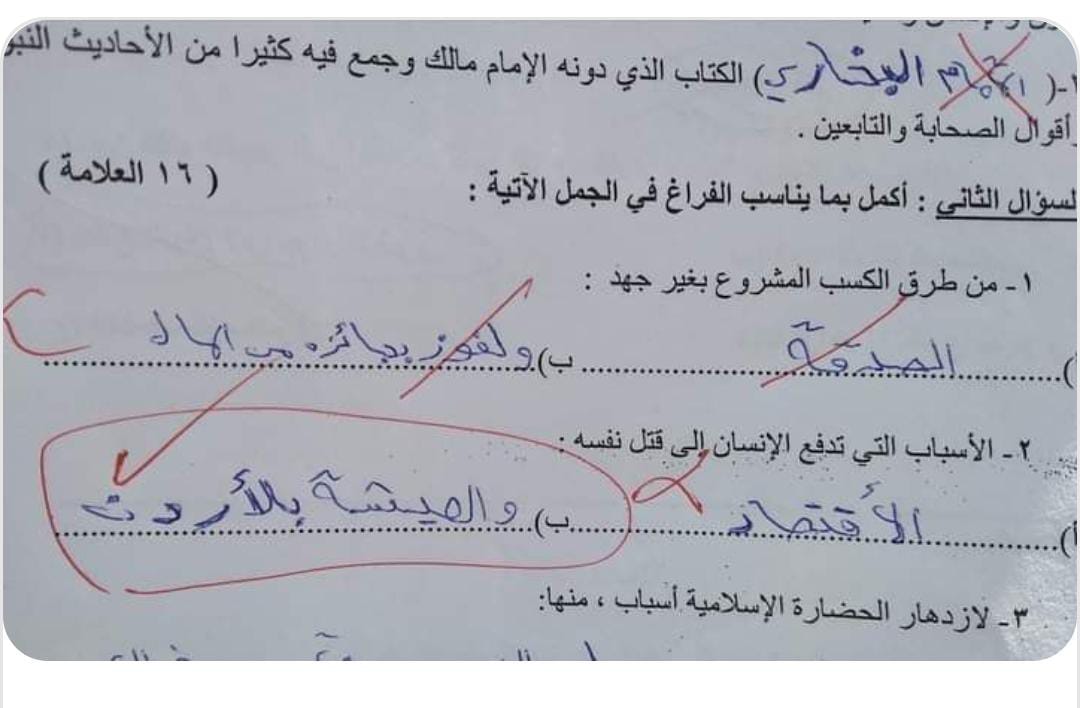 ١-( امام البخاري) الكتاب الذي دونه الإمام مالك وجمع فيه كثيرا من الأحاديث النبو
أقوال الصحابة والتابعين .
لسؤال الثاني : أكمل بما يناسب الفراغ في الجمل الآتية : ( ١٦ العلامة )
١- من طرق الكسب المشروع بغير جهد :
أ) الصدقة ب) ولفوز بجائزه من المال
٢- الأسباب التي تدفع الإنسان إلى قتل نفسه :
أ) الأقتصاد ب) والعيشة بالأردن
٣- لازدهار الحضارة الإسلامية أسباب ، منها: